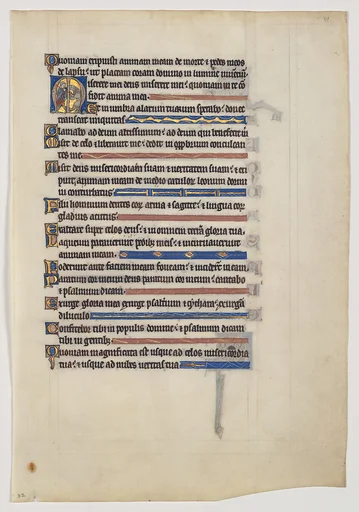 Quoniam eripuisti animam meam de morte & pedes meos
de lapsu: ut placeam coram domino in lumine viventium
Miserere mei deus miserere mei: quoniam in te con
fidit anima mea.
Et in umbra alarum tuarum sperabo: donec
transeat iniquitas
Clamabo ad deum altissimum: ad deum qui benefecit m
Misit de celo & liberavit me: dedit in opprobrium conculcan
tes me
Misit deus misericordiam suam & veritatem suam: & eri
puit animam meam de medio catulorum leonum dormi
vi conturbatus
Filii hominum dentes eor arma & sagitte: & lingua eor
gladius acutus
Exaltare super celos deus: & in omnem terram gloria tua
Laqueum paraverunt pedibz meis: & incurvaverunt
animam meam
Foderunt ante faciem meam foveam: & inciderunt in eam
Paratum cor meum deus paratum cor meum: cantabo
& psalmum dicam
Exurge gloria mea exurge psalterium & cythara: exurgam
diluculo
Confitebor tibi in populis domine: & psalmum dicam
tibi in gentibz
Quoniam magnificata est usque ad celos misericordia
tua: & usque ad nubes veritas tua